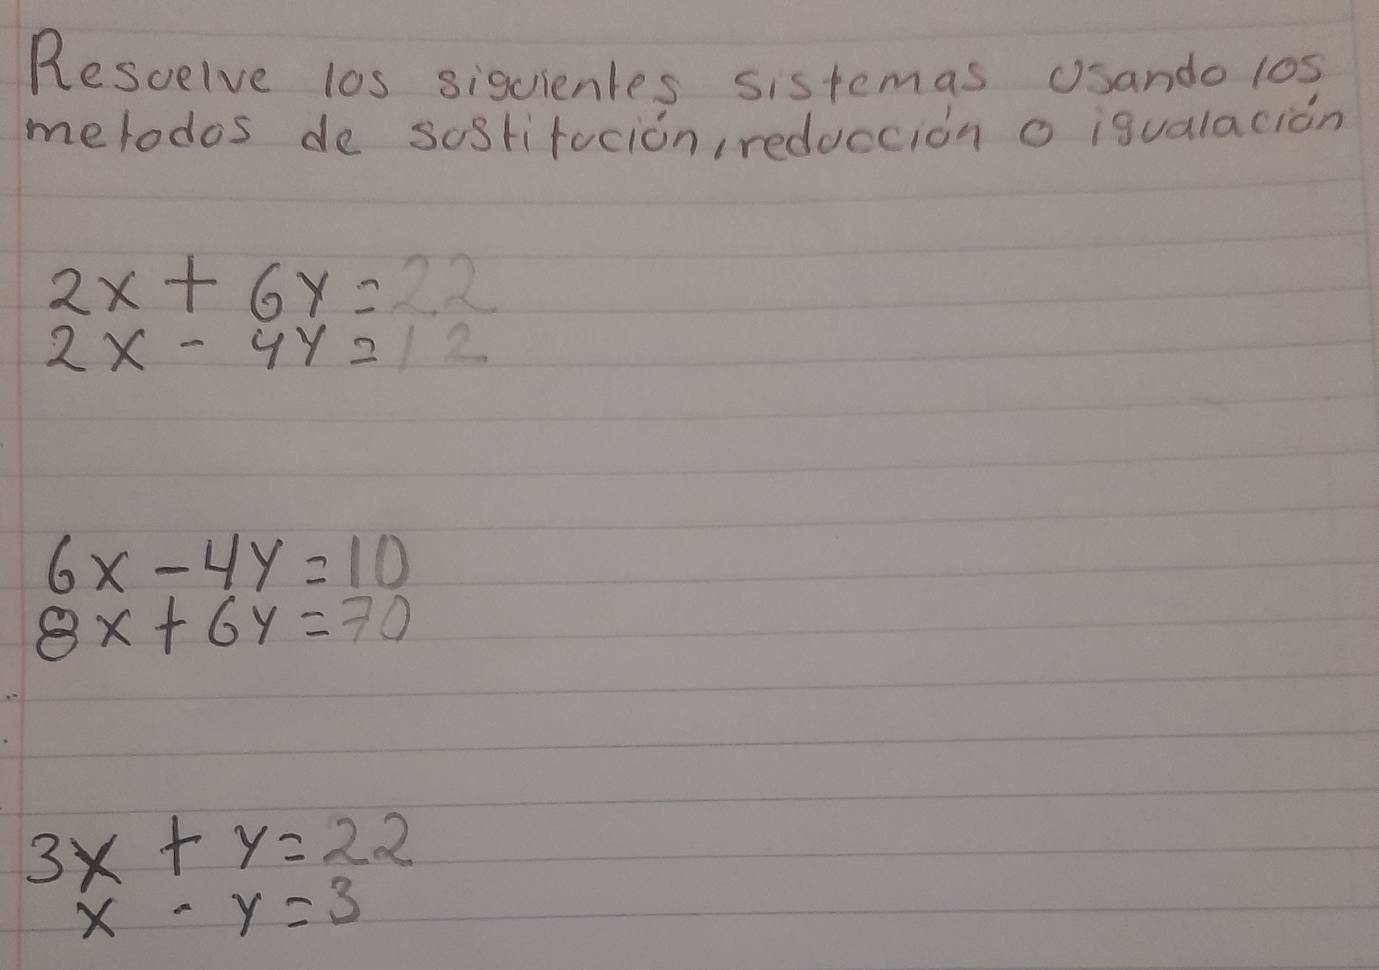 Resuelve los siguientes sistemas usando los
metodos de sustitución, reducción o igualación
2x + 6y = 22
2x - 4y = 12
6x - 4y = 10
8x + 6y = 70
3x + y = 22
x - y = 3